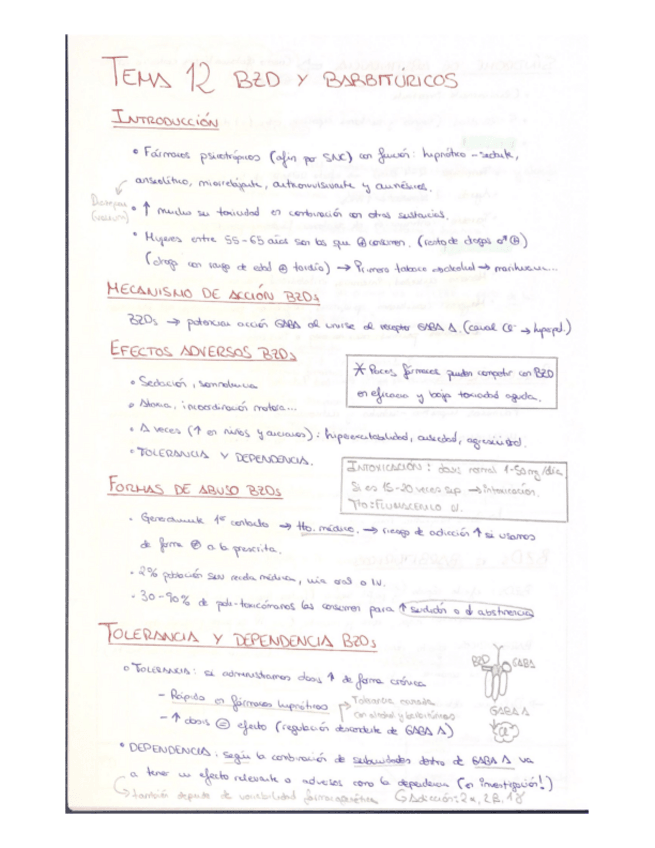 TEMA 12 BZD Y BARBITÚRICOS
INTRODUCCIÓN
• Fármacos psicotrópicos (afín por SNC) con función: hipnótico-sedante,
ansiolítico, miorrelajante, anticonvulsivante y amnésico.
Diazepam (valium)
• ↑ mucho su toxicidad en combinación con otras sustancias.
• Mujeres entre 55-65 años son las que ⊕ consumen. (resto de drogas ♂ ⊕)
(droga con rango de edad ⊕ tardío) → Primero tabaco → alcohol → marihuana...
MECANISMO DE ACCIÓN BZDs
BZDs → potencian acción GABA al unirse al receptor GABA A. (canal Cl⁻ → hiperpol.)
EFECTOS ADVERSOS BZDs
• Sedación, somnolencia
• Ataxia, incoordinación motora...
• A veces (↑ en niños y ancianos): hiperexcitabilidad, ansiedad, agresividad.
• TOLERANCIA Y DEPENDENCIA.
* Pocos fármacos pueden competir con BZD
en eficacia y baja toxicidad aguda.
INTOXICACIÓN: dosis normal 1-50mg/día
Si es 15-20 veces sup. → Intoxicación.
Tto: FLUMACENILO
FORMAS DE ABUSO BZDs
• Generalmente 1er contacto → tto. médico. → riesgo de adicción ↑ si usamos
de forma ≠ a la prescrita.
• 2% población sin receta médica, vía oral o I.V.
• 30-90% de poli-toxicómanos las consumen para ↑ sedación o abstinencia
TOLERANCIA Y DEPENDENCIA BZDs
• TOLERANCIA: si administramos dosis ↑ de forma crónica
- Rápida en fármacos hipnóticos
Tolerancia cruzada
con alcohol y barbitúricos
- ↑ dosis = efecto (regulación descendente de GABA A)
BZD GABA
GABA A
Cl⁻
• DEPENDENCIA: según la combinación de subunidades dentro de GABA A va
a tener un efecto relevante o adverso como la dependencia (en investigación!)
también depende de variabilidad farmacogenética
Adicción: 2α, 2β, 1γ